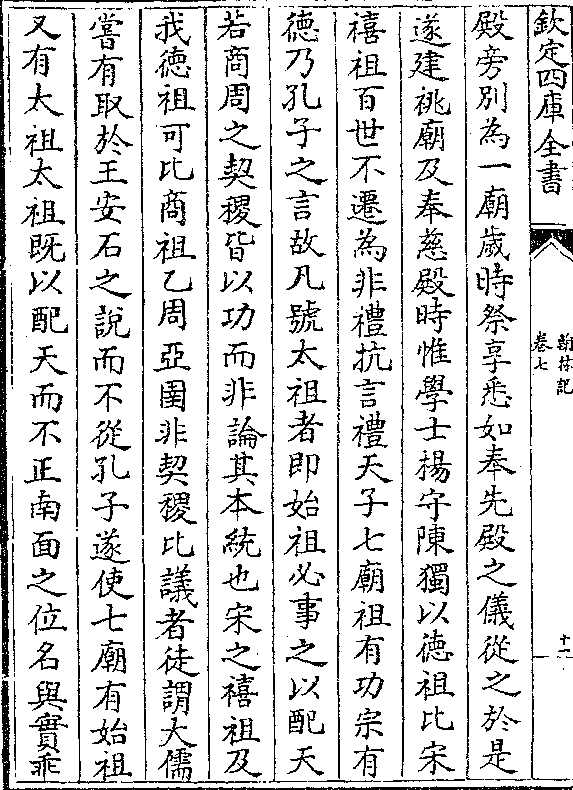 欽定四庫全書
翰林記
卷七
十一
殿旁別為一廟歲時祭享悉如奉先殿之儀從之於是
遂建祧廟及奉慈殿時惟學士楊守陳獨以德祖比宋
禧祖百世不遷為非禮抗言禮天子七廟祖有功宗有
德乃孔子之言故凡號太祖者即始祖必事之以配天
若商周之契稷皆以功而非論其本統也宋之禧祖及
我德祖可比商祖乙周亞圉非契稷比議者徒謂大儒
嘗有取於王安石之說而不從孔子遂使七廟有始祖
又有太祖太祖既以配天而不正南面之位名與實乖